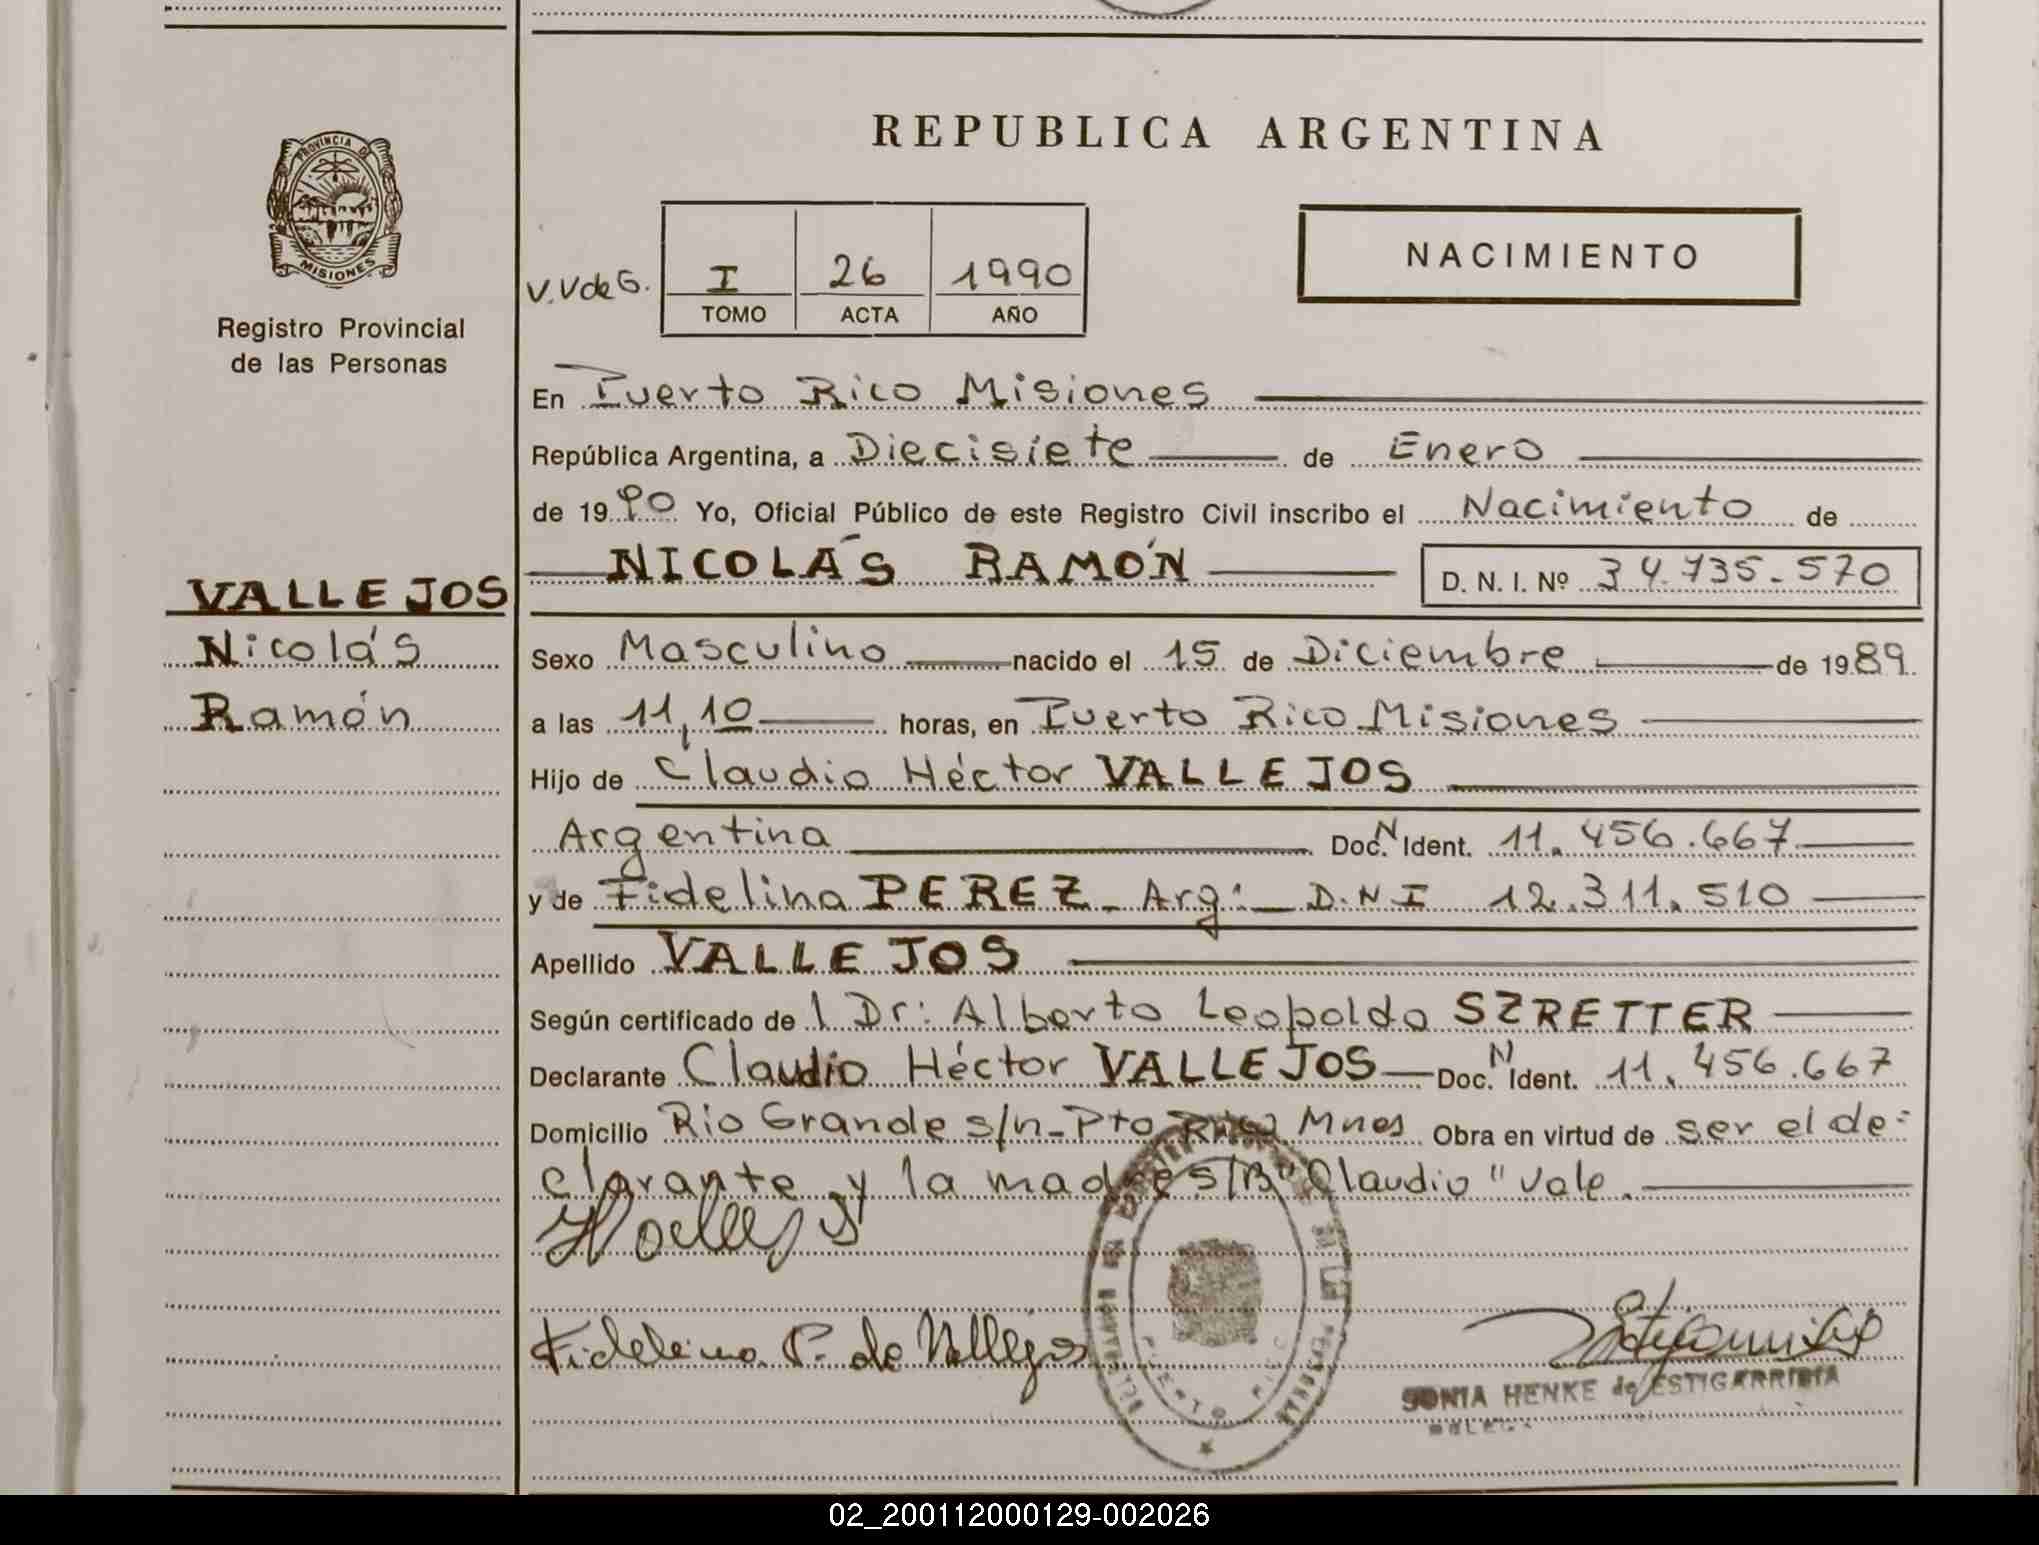 PROVINCIA DE
MISIONES
Registro Provincial
de las Personas
VALLEJOS
Nicolás
Ramón
REPUBLICA ARGENTINA
V.VdeG. I 26 1990
TOMO ACTA AÑO
NACIMIENTO
En Puerto Rico Misiones
República Argentina, a Diecisiete de Enero
de 1990 Yo, Oficial Público de este Registro Civil inscribo el Nacimiento de
NICOLÁS RAMÓN D. N. I. Nº 34.735.570
Sexo Masculino nacido el 15 de Diciembre de 1989.
a las 11,10 horas, en Puerto Rico Misiones
Hijo de Claudio Héctor VALLEJOS
Argentina Doc. N Ident. 11.456.667
y de Fidelina PEREZ - Arg: - D.N.I 12.311.510
Apellido VALLEJOS
Según certificado de l Dr: Alberto Leopoldo SZRETTER
Declarante Claudio Héctor VALLEJOS Doc. N Ident. 11.456.667
Domicilio Rio Grande s/n-Pto Rico Mnes Obra en virtud de ser el de-
clarante y la madre S/B "Claudio" vale.
Fidelina P. de Vallejos
PUERTO RICO
SONIA HENKE de ESTIGARRIBIA
02_200112000129-002026